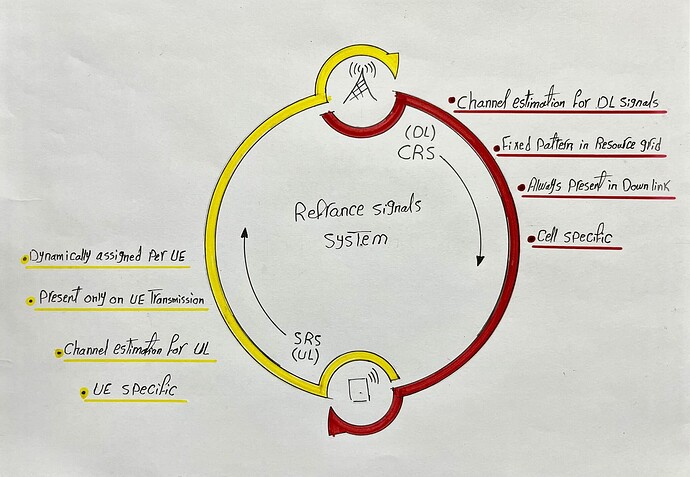 Channel estimation for DL signals
Fixed Pattern in Resource grid
Always Present in Downlink
Cell specific
(DL)
CRS
Refrance signals
system
Dynamically assigned Per UE
Present only on UE Transmission
Channel estimation for UL
UE specific
SRS
(UL)